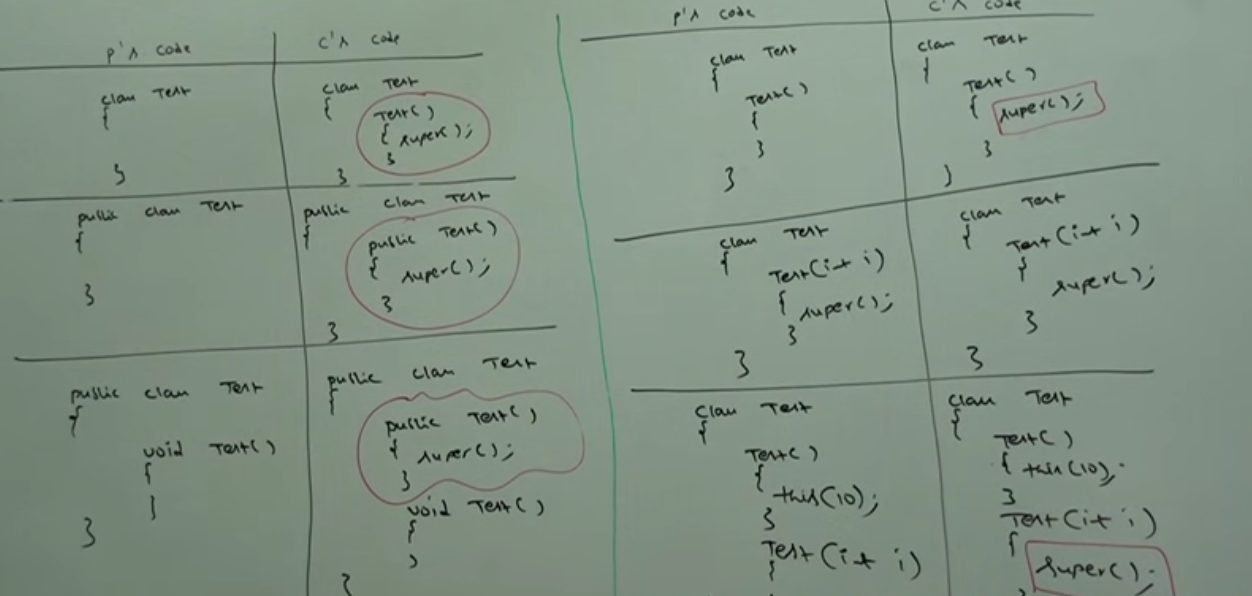 P's code
C's code
class Test
{
}
class Test
{
Test()
{ super();
}
}
public class Test
{
}
public class Test
{
public Test()
{ super();
}
}
public class Test
{
void Test()
{
}
}
public class Test
{
public Test()
{ super();
}
void Test()
{
}
}
P's code
C's code
class Test
{
Test()
{
}
}
class Test
{
Test()
{ super();
}
}
class Test
{
Test(int i)
{ super();
}
}
class Test
{
Test(int i)
{
super();
}
}
class Test
{
Test()
{
this(10);
}
Test(int i)
{
class Test
{
Test()
{ this(10);
}
Test(int i)
{
super();
}